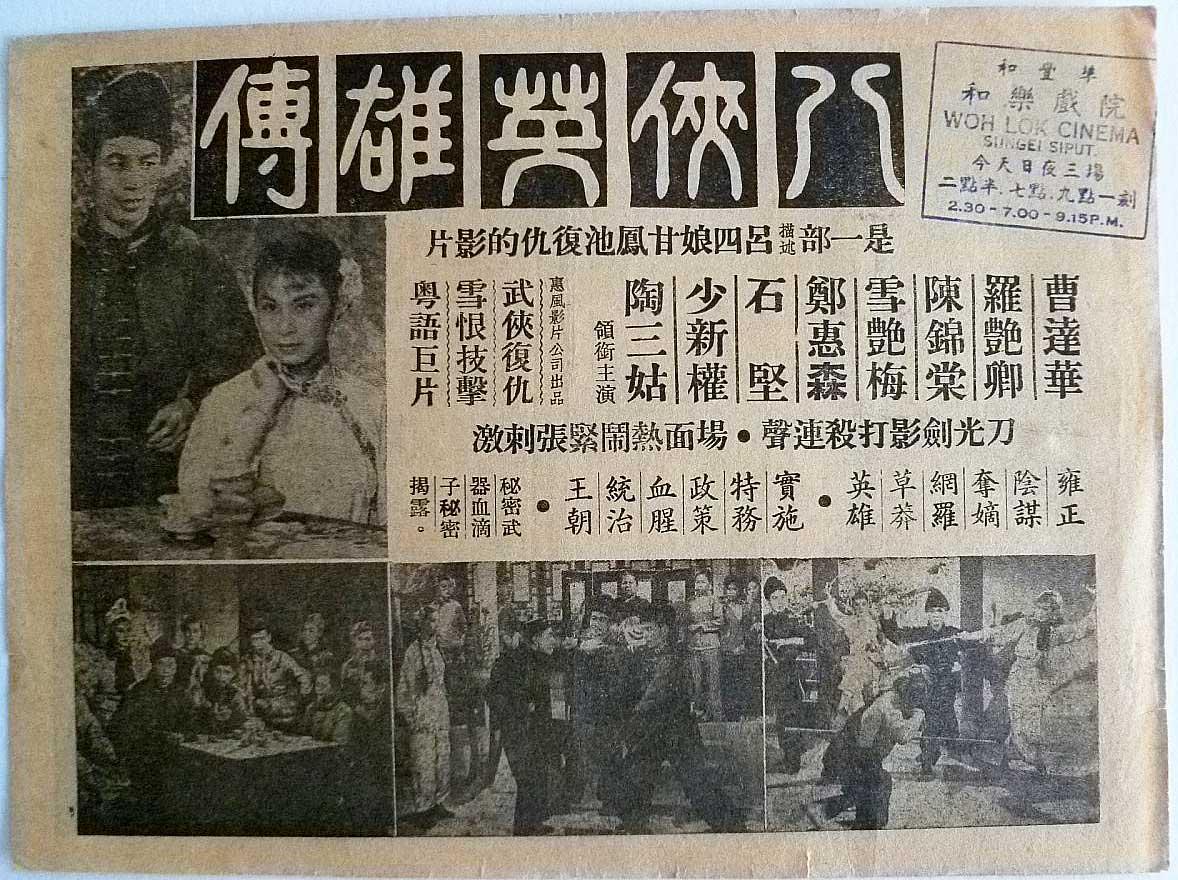 八俠英雄傳
和豐埠
和樂戲院
WOH LOK CINEMA
SUNGEI SIPUT.
今天日夜三場
二點半．七點．九點一刻
2.30-7.00-9.15P.M.
是一部描述呂四娘甘鳳池復仇的影片
曹達華
羅艷卿
陳錦棠
雪艷梅
鄭惠森
石堅
少新權
陶三姑
領銜主演
惠風影片公司出品
武俠復仇
雪恨技擊
粵語巨片
刀光劍影打殺連聲•場面熱鬧緊張刺激
雍正
陰謀
奪嫡
網羅
草莽
英雄
•
實施
特務
政策
血腥
統治
王朝
•
秘密武
器血滴
子秘密
揭露。